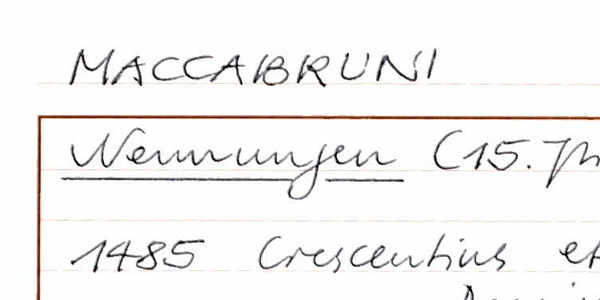 MACCABRUNI
Nennungen (15. Jh
1485 Crescentius et